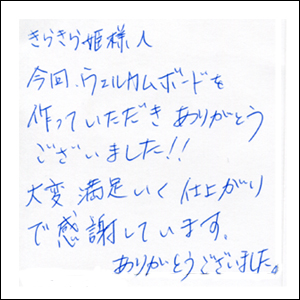 きらきら姫様人
今回、ウェルカムボードを
作っていただきありがとう
ございました!!
大変満足いく仕上がり
で感謝しています。
ありがとうございました。